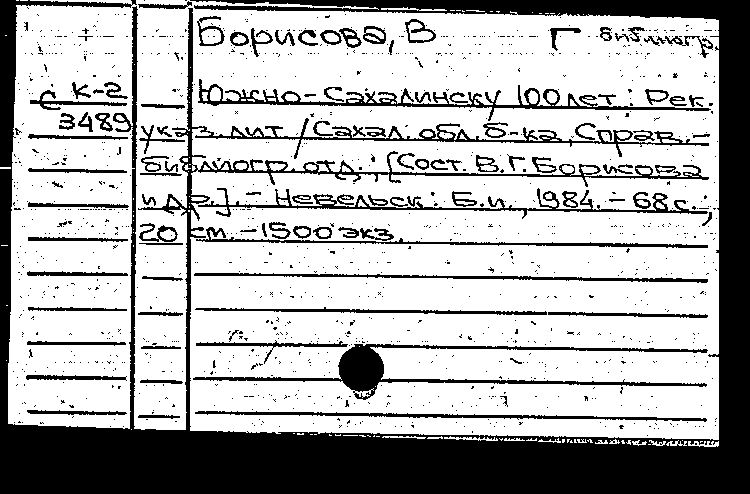 Борисова, В Г библиогр.
С К-2
3489
Южно-Сахалинску 100 лет : Рек.
указ. лит / Сахал. обл. б-ка, Справ.-
библиогр. отд.; [Сост. В.Г. Борисова
и др.]. - Невельск : Б.и., 1984. - 68 с.;
20 см. - 1500 экз.